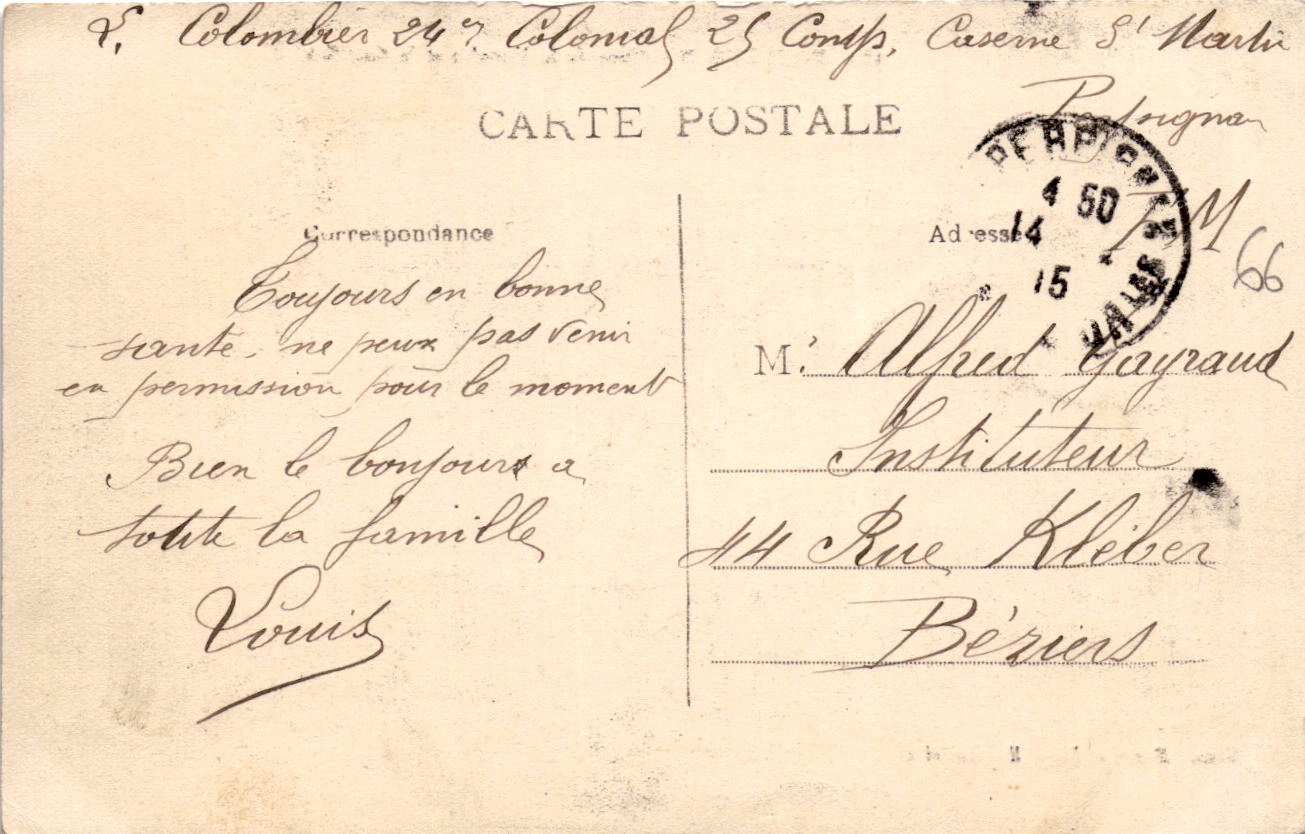 L. Colombier 24e Colonial 25 Comp. Caserne St Martin
Perpignan
CARTE POSTALE
PERPIGNAN
4 50
14
15
F M
66
Correspondance
Toujours en bonne
santé, ne peux pas venir
en permission pour le moment
Bien le bonjour a
toute la famille
Louis
Adresse
M. Alfred Gayraud
Instituteur
44 Rue Kléber
Béziers